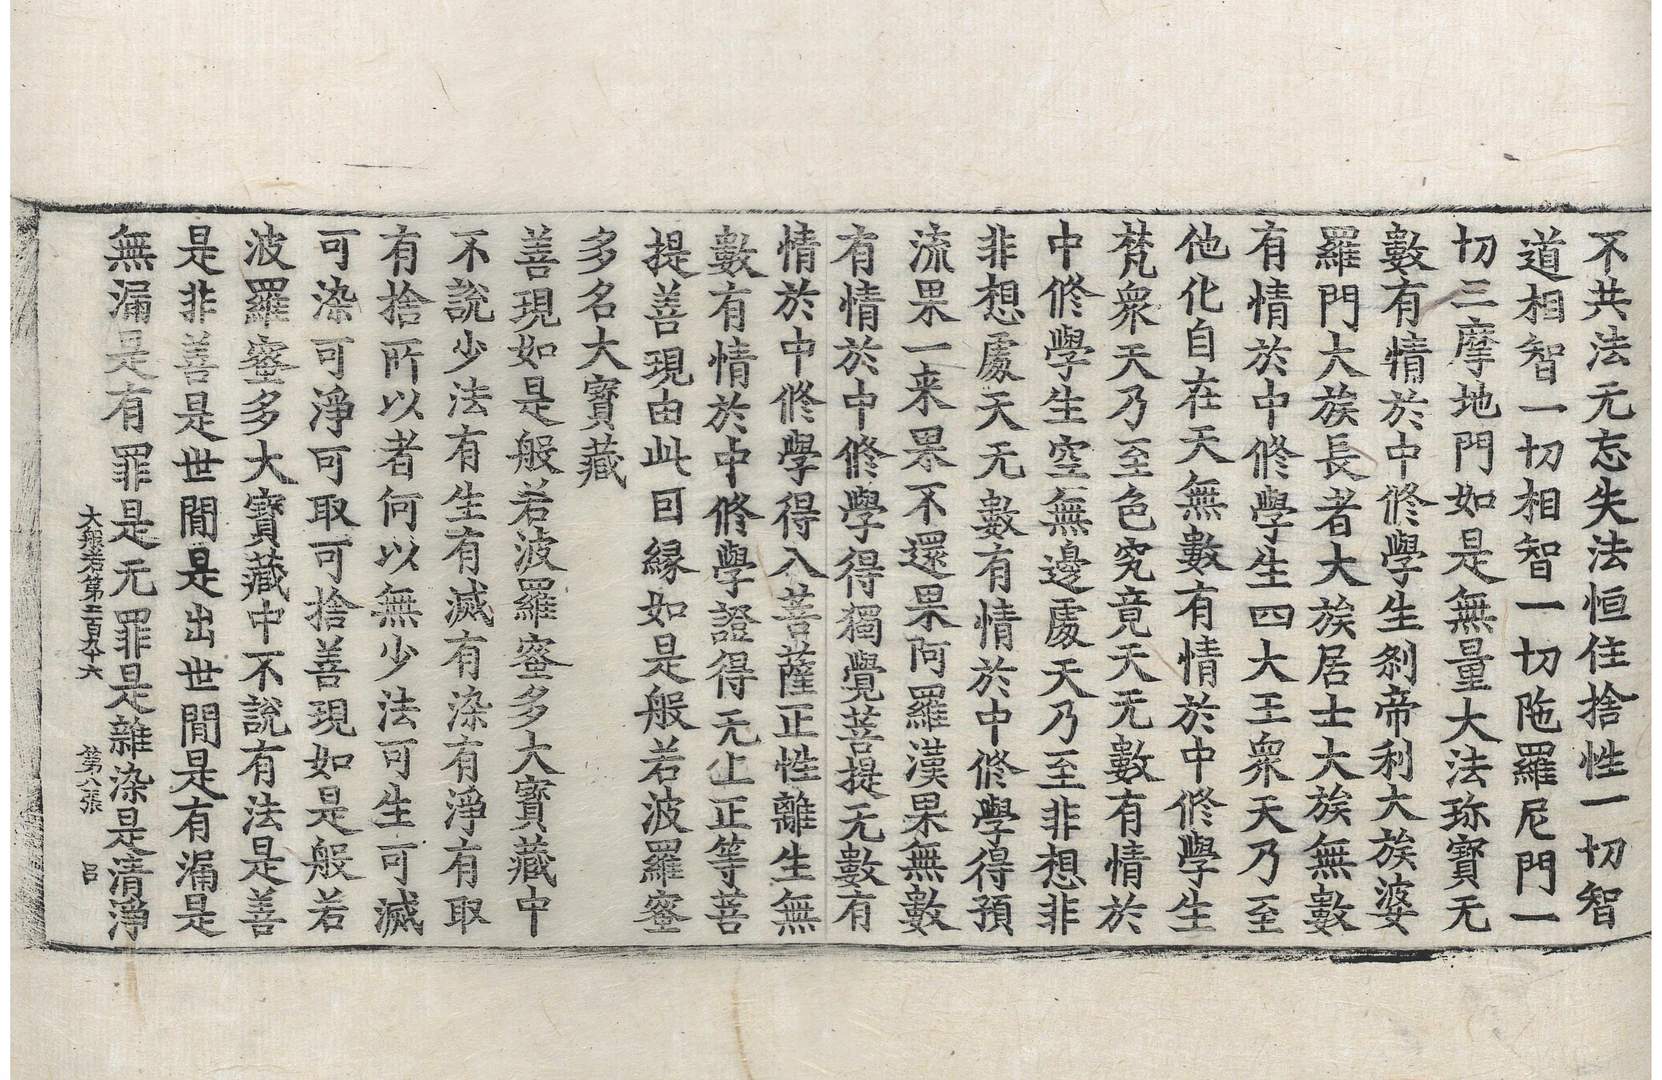 不共法无忘失法恒住捨性一切智
道相智一切相智一切陁羅尼門一
切三摩地門如是無量大法珎寶无
數有情於中修學生刹帝利大族婆
羅門大族長者大族居士大族無數
有情於中修學生四大王衆天乃至
他化自在天無數有情於中修學生
梵衆天乃至色究竟天无數有情於
中修學生空無邊處天乃至非想非
非想處天无數有情於中修學得預
流果一来果不還果阿羅漢果無數
有情於中修學得獨覺菩提无數有
情於中修學得入菩薩正性離生無
數有情於中修學證得无上正等菩
提善現由此因縁如是般若波羅蜜
多名大寶藏
善現如是般若波羅蜜多大寶藏中
不說少法有生有滅有染有淨有取
有捨所以者何以無少法可生可滅
可染可淨可取可捨善現如是般若
波羅蜜多大寶藏中不說有法是善
是非善是世間是出世間是有漏是
無漏是有罪是无罪是雜染是清淨
大般若第二百九十六 第八張 呂